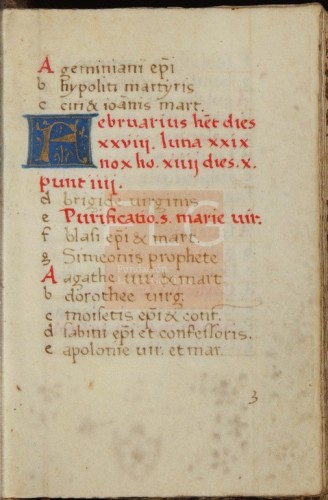 A geminiani ep̄i
b hypoliti martyris
c ciri & ioānis mart.
Februarius hēt dies
xxviij. luna xxix
nox ho. xiiij dies. x.
punt iiij.
d brigide virginis
e Purificatio. s. marie vir.
f blasi ep̄i & mart.
g Simeonis prophete
A agathe vir. & mart
b dorothee virg.
c moisetis ep̄i & conf.
d sabini ep̄i et confessoris.
e apolonie vir. et mar.
3